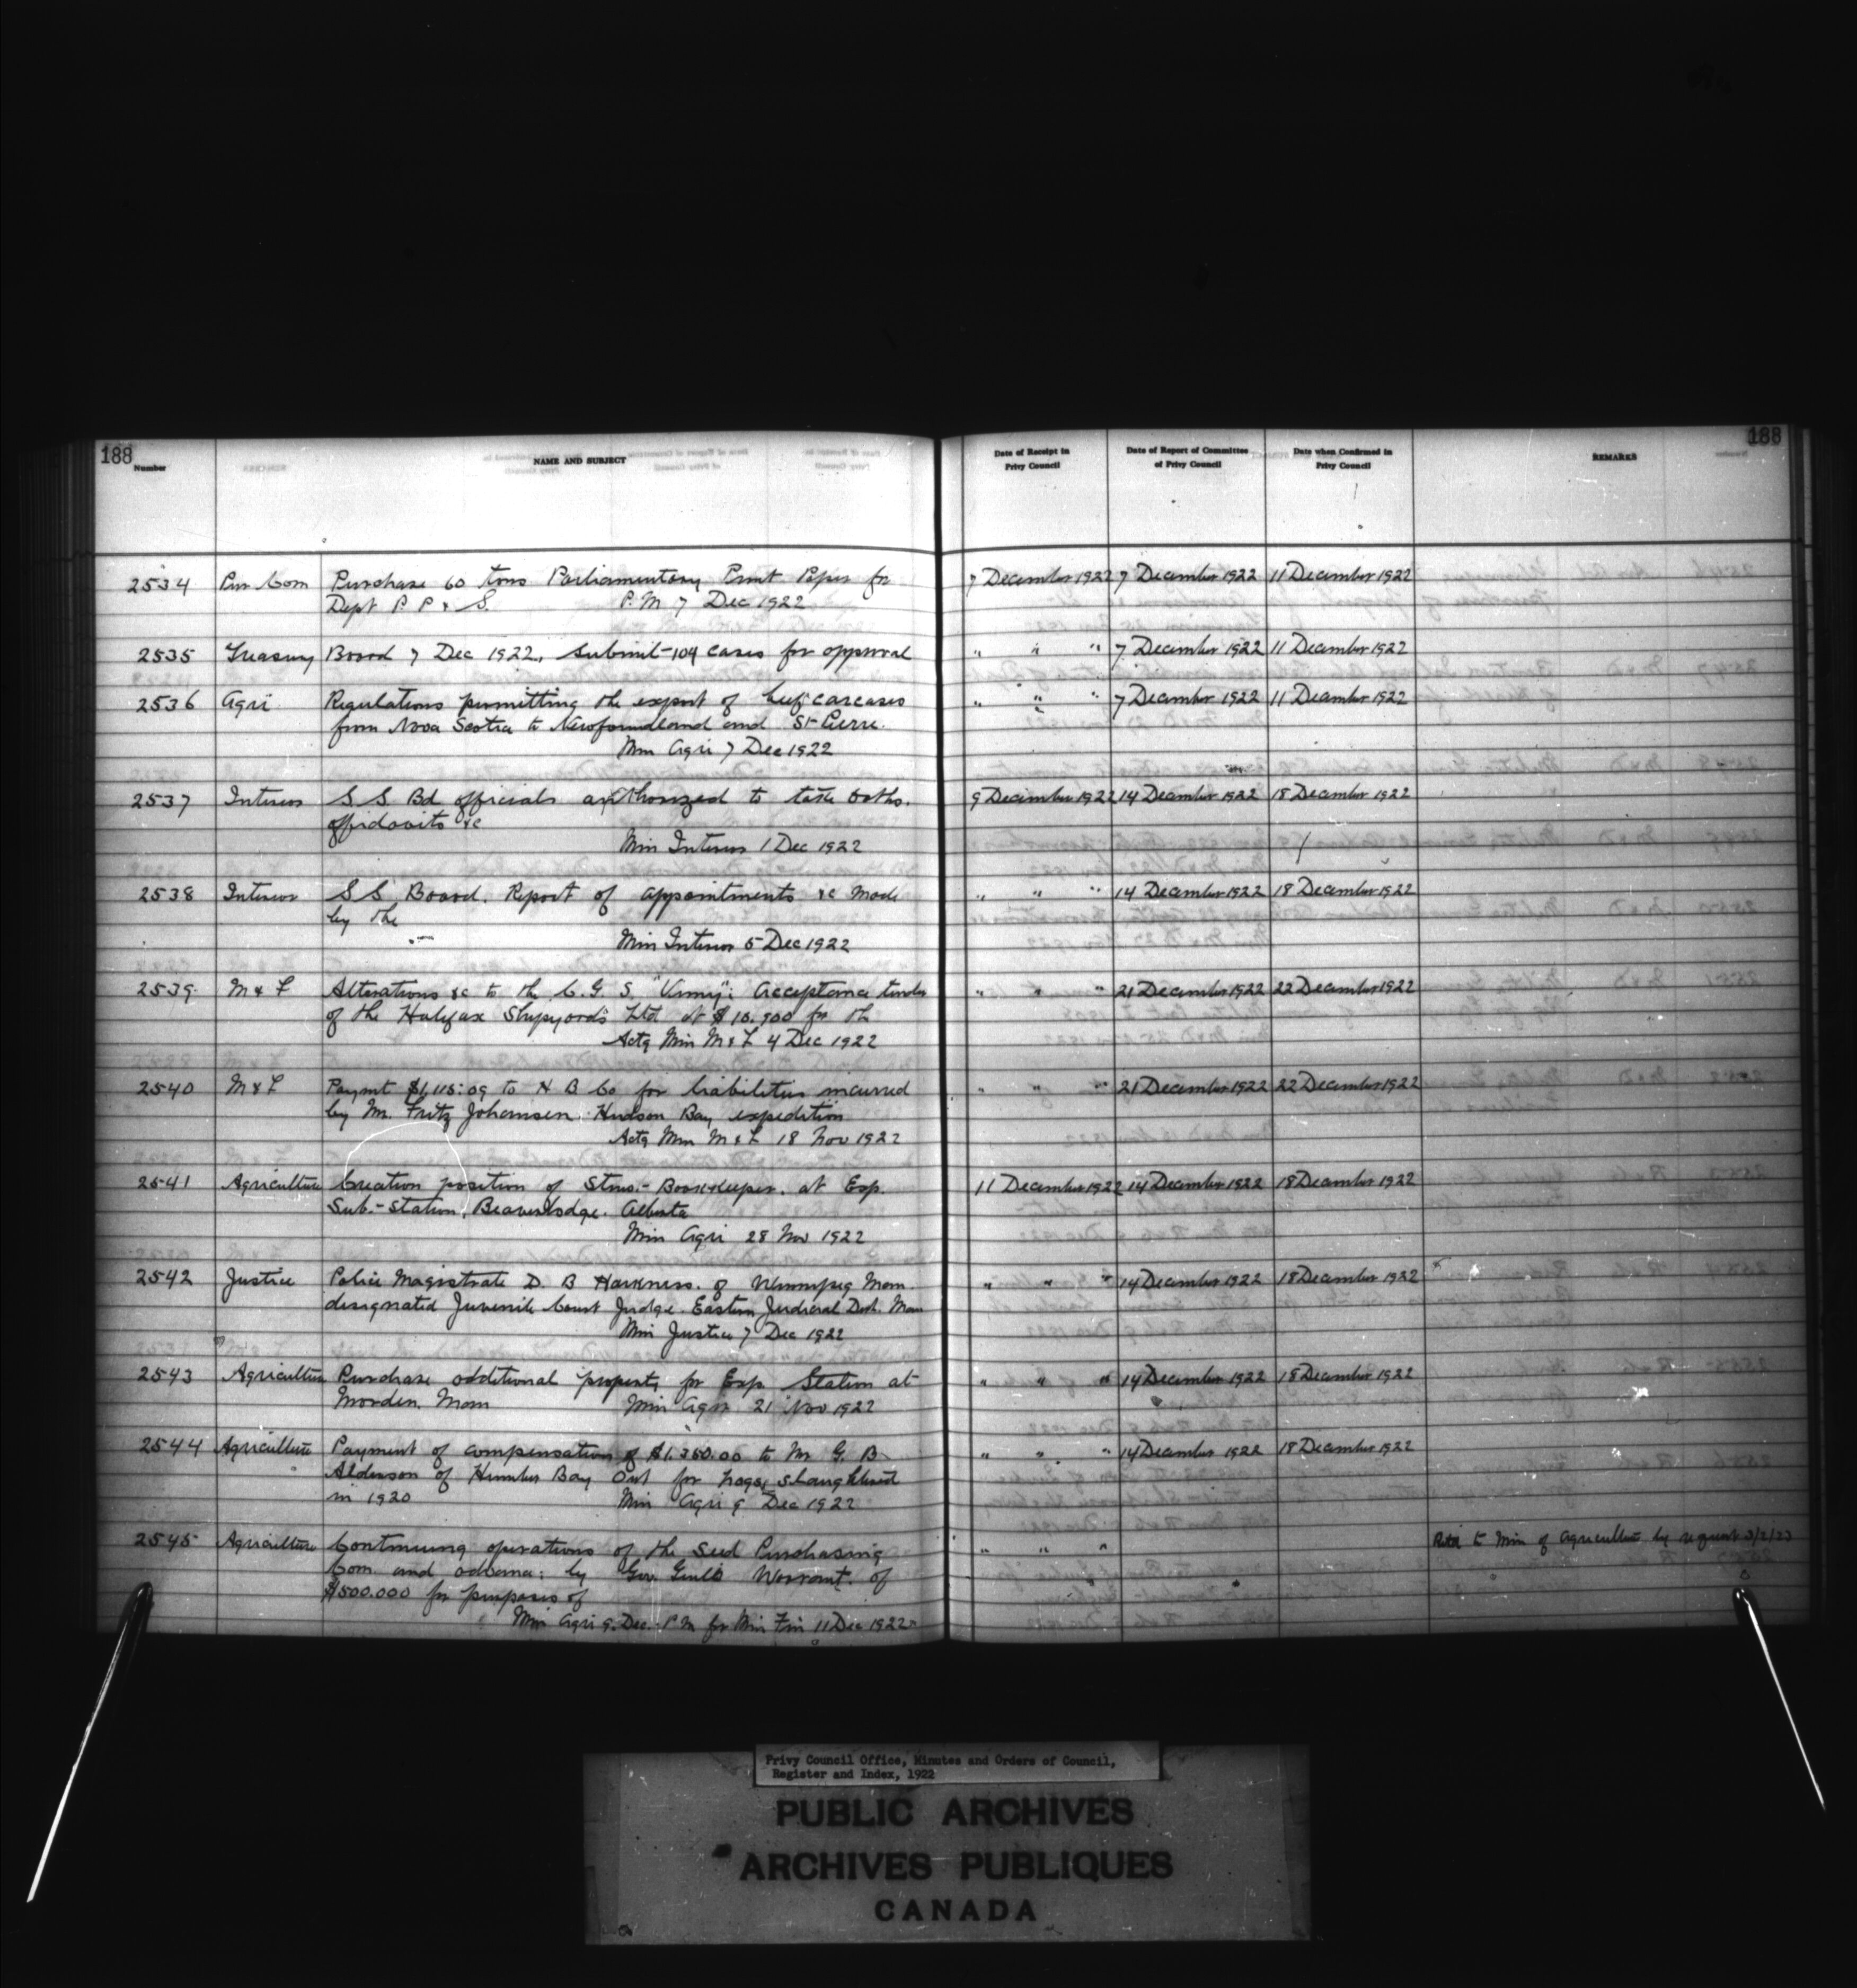 188
188
Number
NAME AND SUBJECT
Date of Receipt in
Privy Council
Date of Report of Committee
of Privy Council
Date when Confirmed in
Privy Council
REMARKS
2534 Pur Com Purchase 60 tons Parliamentary Print Paper for 7 December 1922 7 December 1922 11 December 1922
Dept P. P & S. P. M 7 Dec 1922
2535 Treasury Board 7 Dec 1922, Submit 104 cases for approval " " " 7 December 1922 11 December 1922
2536 Agri Regulations permitting the export of beef carcases " " " 7 December 1922 11 December 1922
from Nova Scotia to Newfoundland and St Pierre.
Min Agri 7 Dec 1922
2537 Interior S. S. Bd officials authorized to take oaths. 9 December 1922 14 December 1922 18 December 1922
affidavits &c
Min Interior 1 Dec 1922
2538 Interior S S Board. Report of appointments &c made " " " 14 December 1922 18 December 1922
by the
Min Interior 5 Dec 1922
2539 M & F Alterations &c to the C. G. S. "Vimy": acceptance tender " " " 21 December 1922 22 December 1922
of the Halifax Shipyards Ltd at for th
Actg Min M & F 4 Dec 1922
2540 M & F Paymt to H B Co for liabilities incurred " " " 21 December 1922 22 December 1922
by Mr. Fritz Johansen. Hudson Bay expedition
Actg Min M & F 18 Nov 1922
2541 Agriculture Creation position of Steno.-Bookkeeper. at Exp. 11 December 1922 14 December 1922 18 December 1922
Sub.-Station, Beaverlodge. Alberta
Min Agri 28 Nov 1922
2542 Justice Police Magistrate D. B Harkness. of Winnipeg Man. " " " 14 December 1922 18 December 1922
designated Juvenile Court Judge. Eastern Judicial Dist. Man
Min Justice 7 Dec 1922
2543 Agriculture Purchase additional property for Exp Station at " " " 14 December 1922 18 December 1922
Morden. Man Min Agri 21 Nov 1922
2544 Agriculture Payment of compensation of $1.350.00 to Mr G. B " " " 14 December 1922 18 December 1922
Alderson of Humber Bay Ont for hogs slaughtered
in 1920 Min Agri 9 Dec 1922
2545 Agriculture Continuing operations of the Seed Purchasing " " " to Min of Agriculture by request 3/2/23
Com and advance: by Gov. Genl's Warrant. of
$500.000 for purposes of
Min Agri 9. Dec. P M for Min Fin 11 Dec 1922
Privy Council Office, Minutes and Orders of Council,
Register and Index, 1922
PUBLIC ARCHIVES
ARCHIVES PUBLIQUES
CANADA